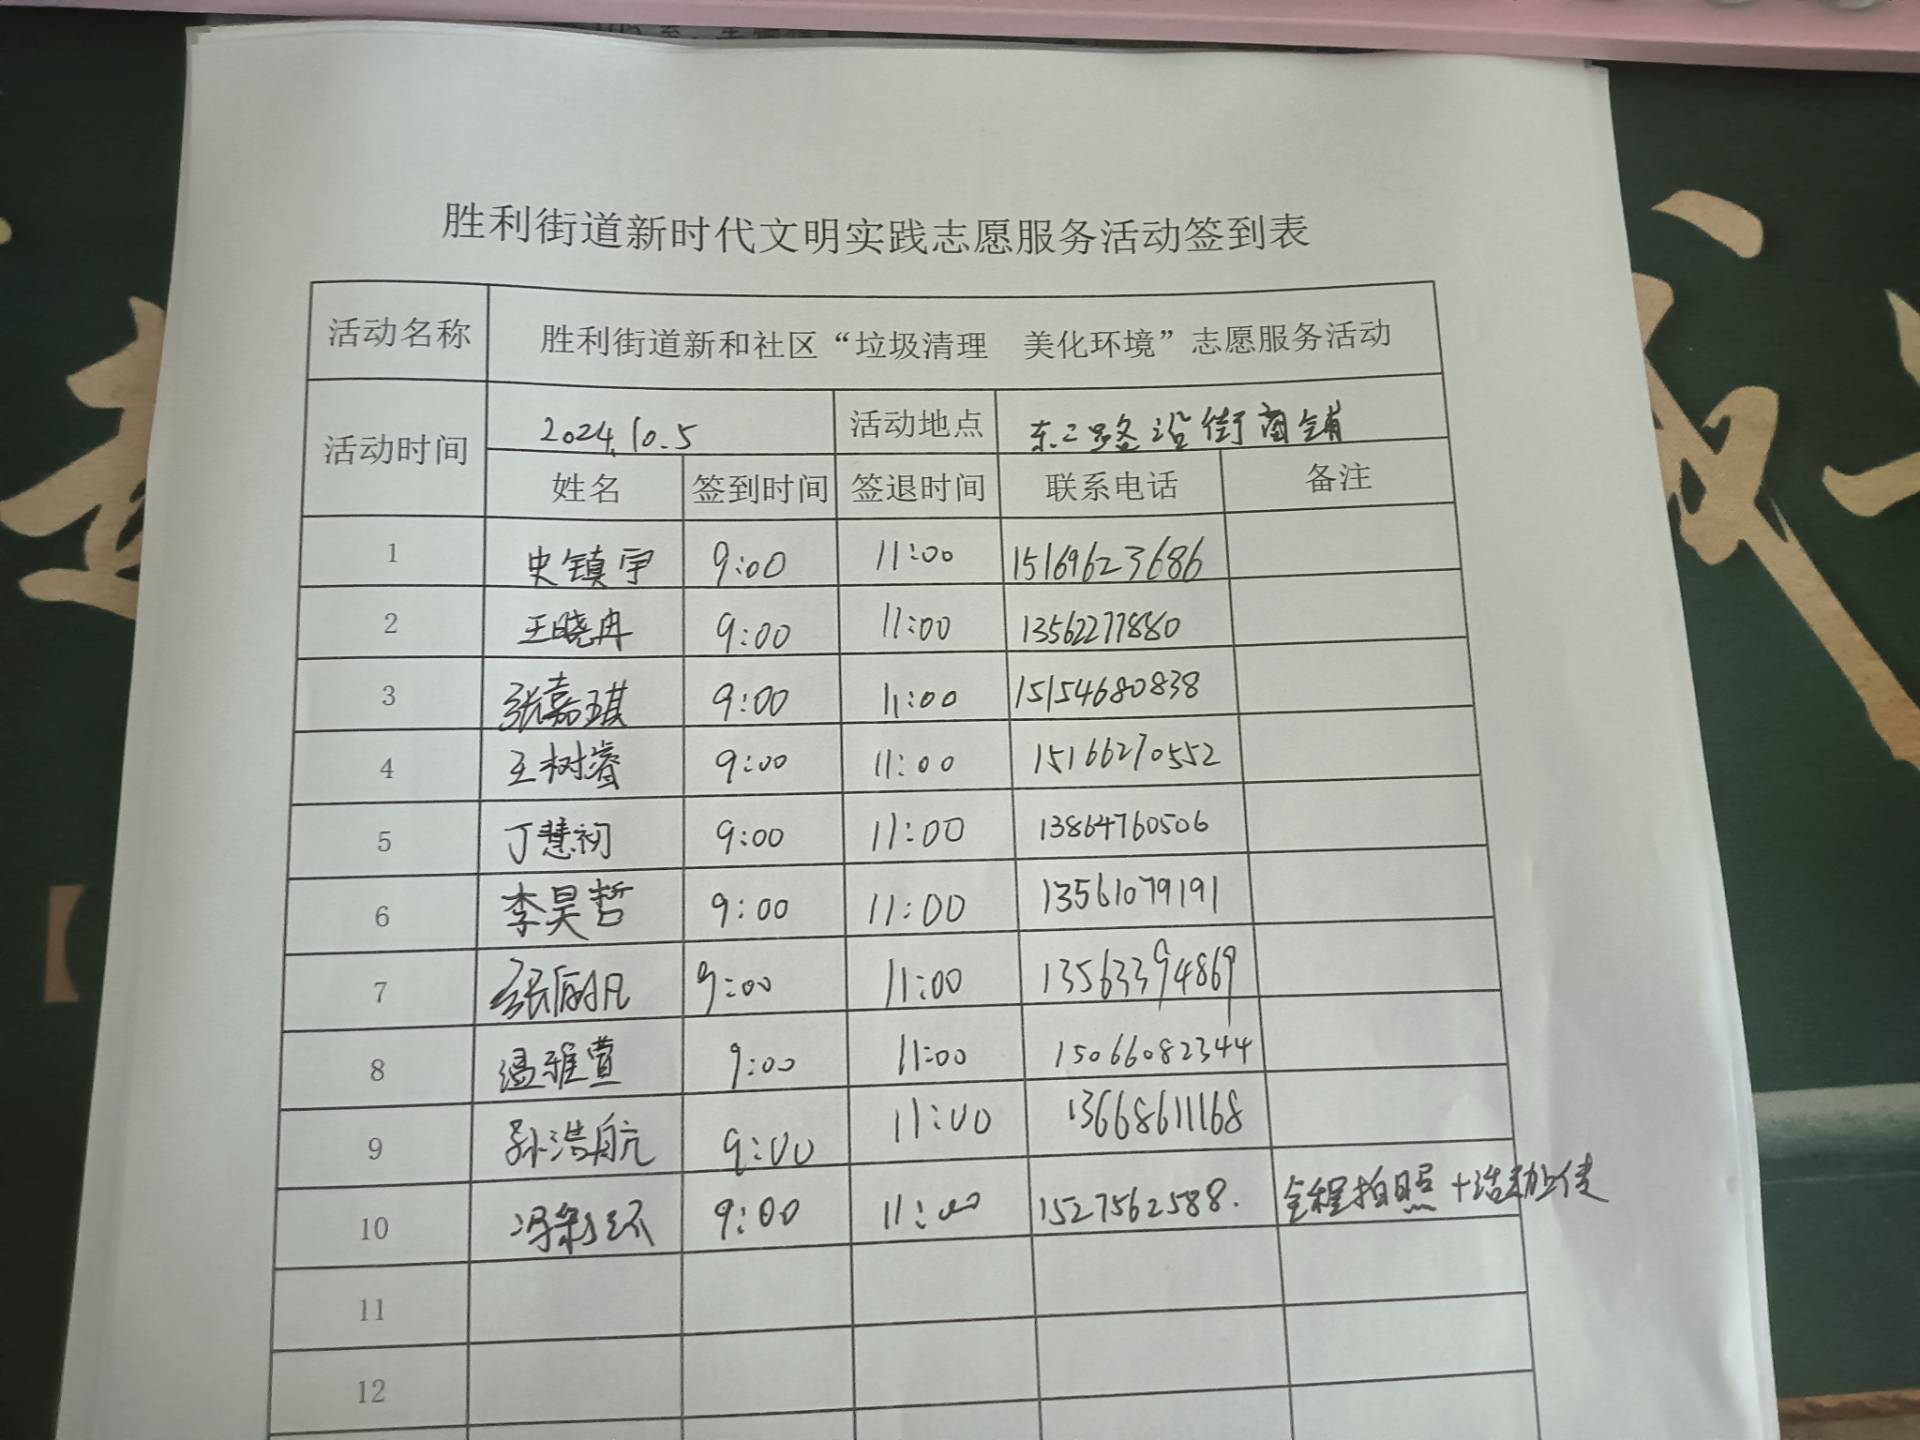 胜利街道新时代文明实践志愿服务活动签到表
活动名称 胜利街道新和社区“垃圾清理 美化环境”志愿服务活动
活动时间 2024.10.5 活动地点 东二路沿街商铺
姓名 签到时间 签退时间 联系电话 备注
1 史镇宇 9:00 11:00 15169623686
2 王晓冉 9:00 11:00 13562277880
3 张嘉琪 9:00 11:00 15154680838
4 王树睿 9:00 11:00 15166270552
5 丁慧初 9:00 11:00 13864760506
6 李昊哲 9:00 11:00 13561079191
7 张 凡 9:00 11:00 13563394869
8 温雅萱 9:00 11:00 15066082344
9 孙浩航 9:00 11:00 13668611168
10 冯 环 9:00 11:00 1527562588. 全程拍照+活动上传
11
12